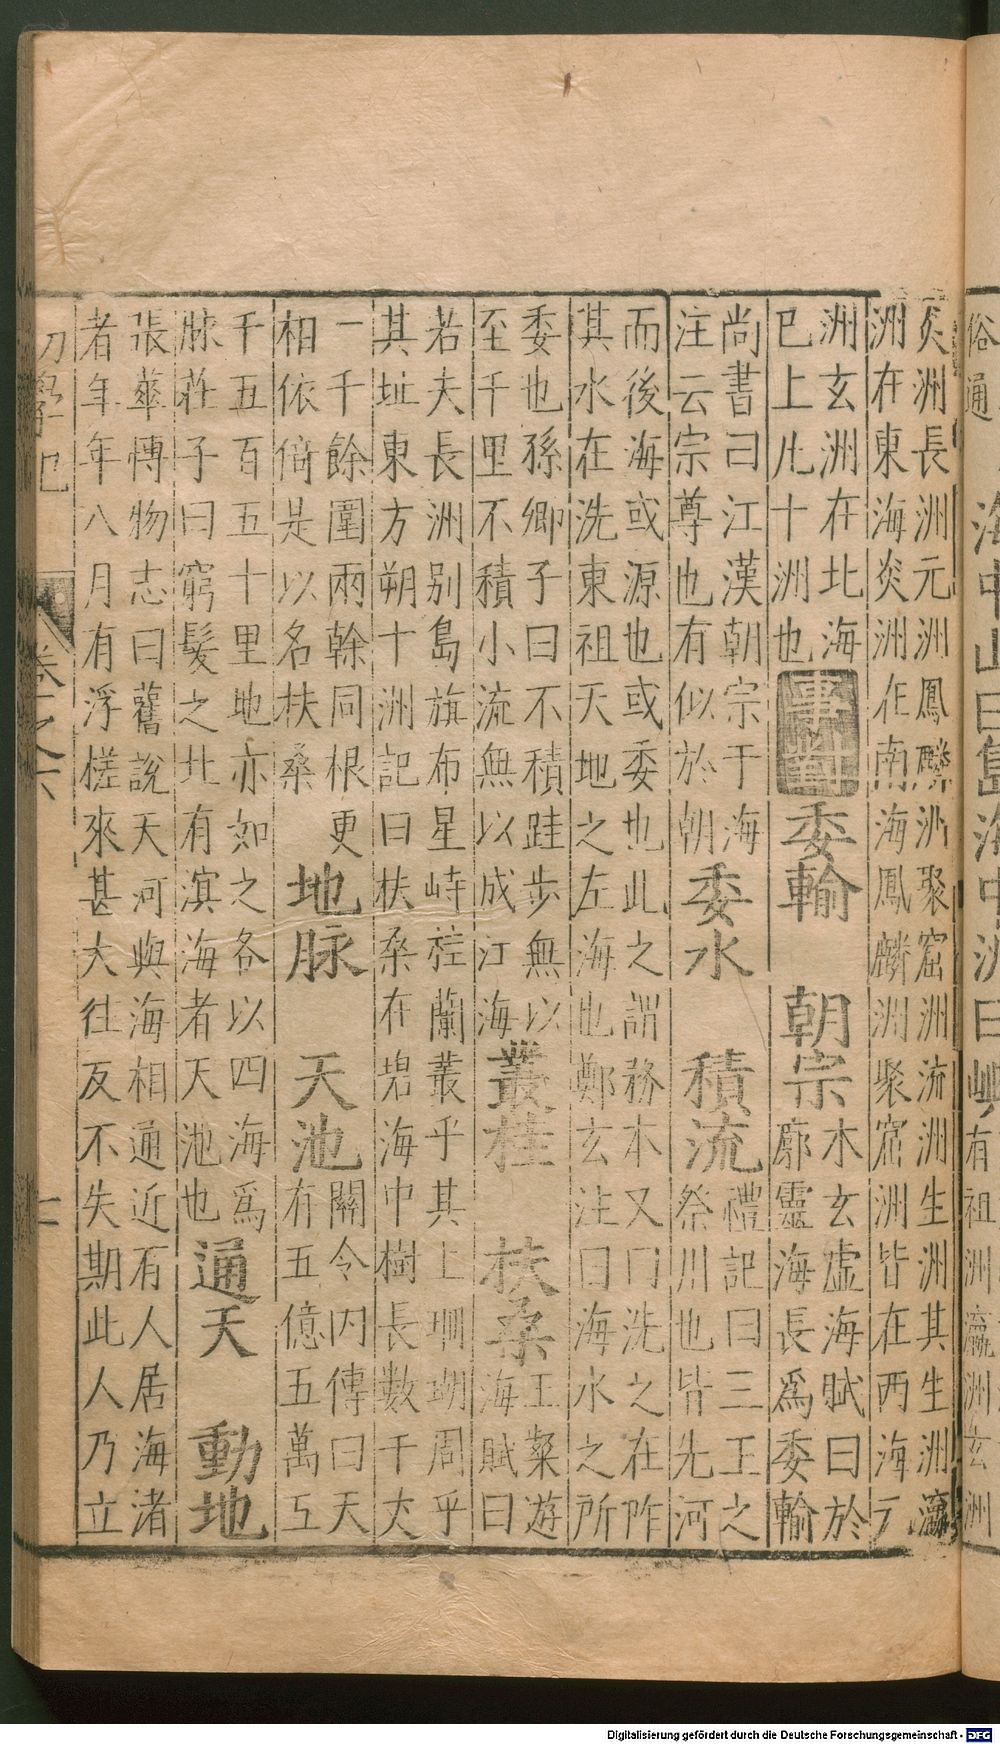 俗通 海中山曰島海中洲曰嶼 有祖洲瀛洲玄洲
炎洲長洲元洲鳳麟洲聚窟洲流洲生洲其生洲瀛
洲在東海炎洲在南海鳳麟洲聚窟洲皆在西海元
洲玄洲在北海
已上凡十洲也
事對 委輸 朝宗
木玄虛海賦曰於
廓靈海長爲委輸
尚書曰江漢朝宗于海
注云宗尊也有似於朝
委水 積流
禮記曰三王之
祭川也皆先河
而後海或源也或委也此之謂務本又曰洗之在阼
其水在洗東祖天地之左海也鄭玄注曰海水之所
委也孫卿子曰不積跬步無以
至千里不積小流無以成江海
叢桂 扶桑
王粲遊
海賦曰
若夫長洲別島旗布星峙桂蘭叢乎其上珊瑚周乎
其址東方朔十洲記曰扶桑在碧海中樹長數千丈
一千餘圍兩幹同根更
相依倚是以名扶桑
地脉 天池
關令内傳曰天
有五億五萬五
千五百五十里地亦如之各以四海爲
脉莊子曰窮髮之北有溟海者天池也
通天 動地
張華博物志曰舊說天河與海相通近有人居海渚
者年年八月有浮槎來甚大往反不失期此人乃立
初學記 卷之六
Digitalisierung gefördert durch die Deutsche Forschungsgemeinschaft - DFG